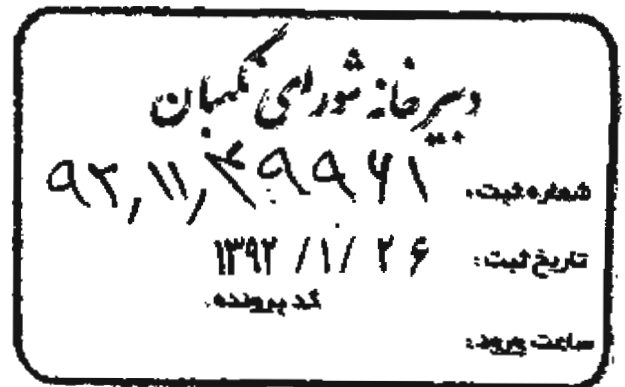 دبیرخانه شورای نگهبان
شماره ثبت: ۹۲٫۱۱٫۴۹۹۶۱
تاریخ ثبت: ۱۳۹۲/۱/۲۶
کد پرونده:
ساعت ورود: